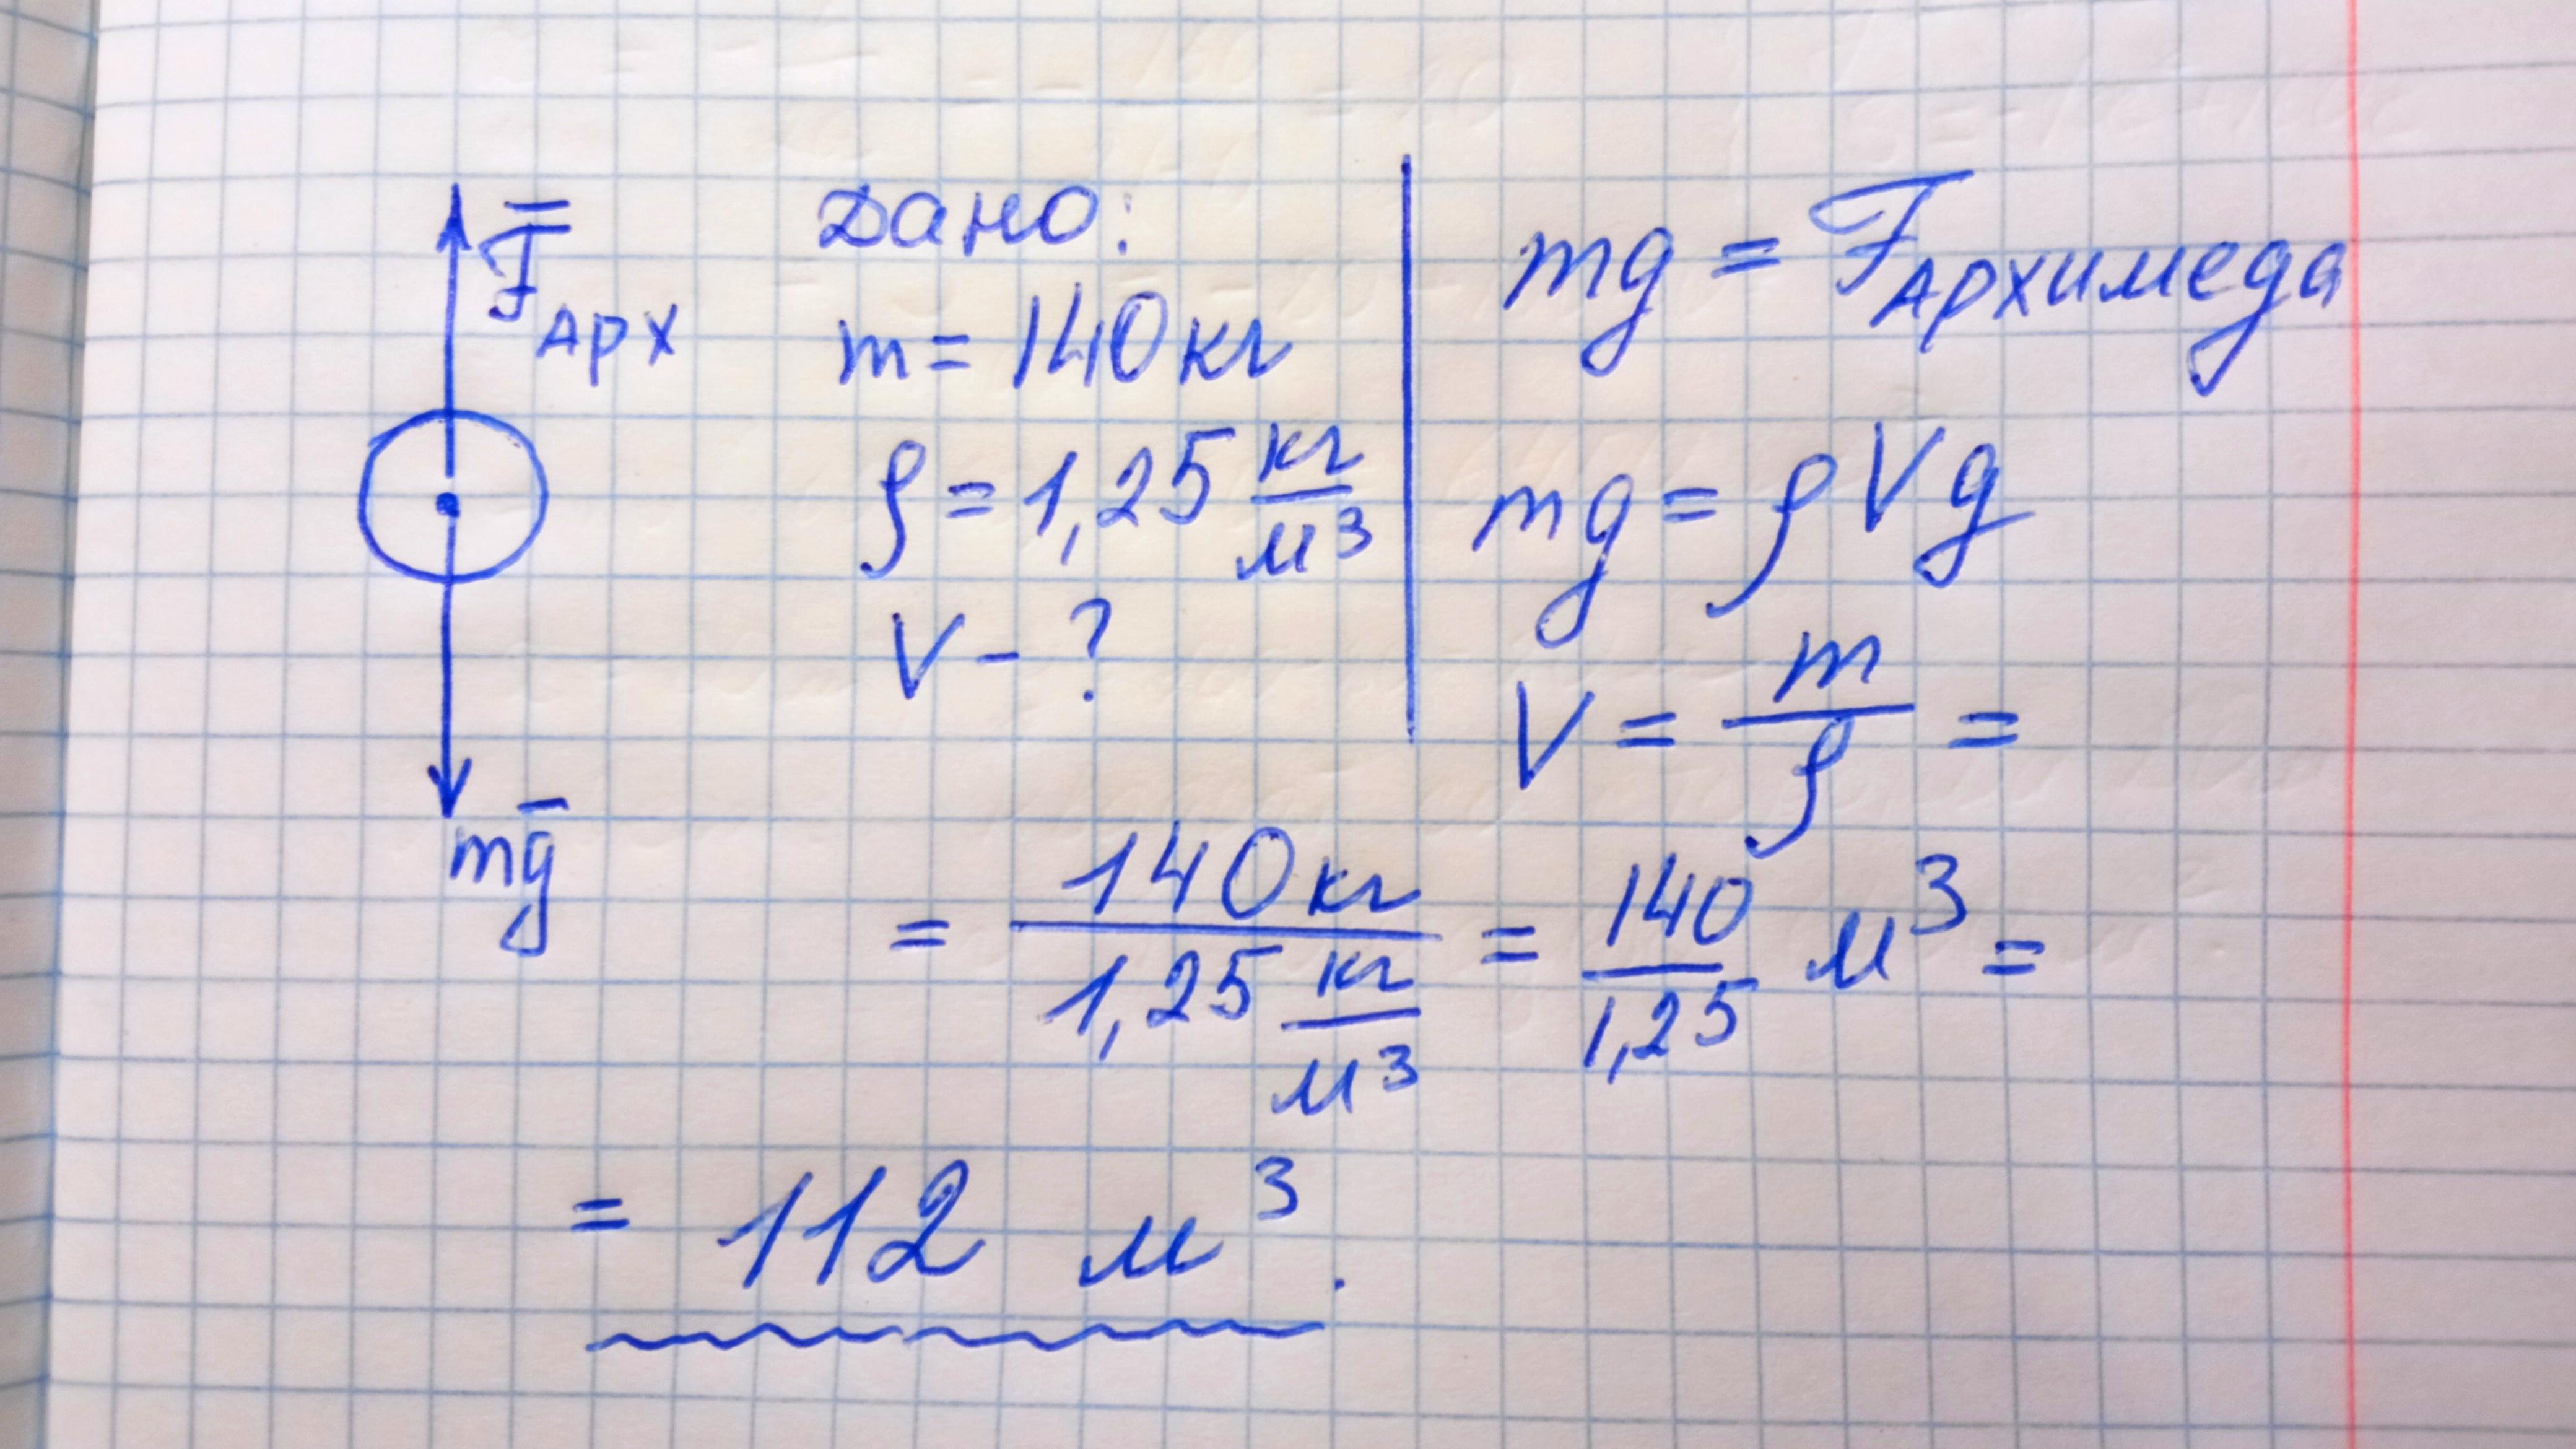 F̅ Арх
mg̅
Дано:
m = 140 кг
ρ = 1,25 кг/м³
V - ?
mg = F Архимеда
mg = ρVg
V = m/ρ =
= 140 кг / 1,25 кг/м³ = 140/1,25 м³ =
= 112 м³.